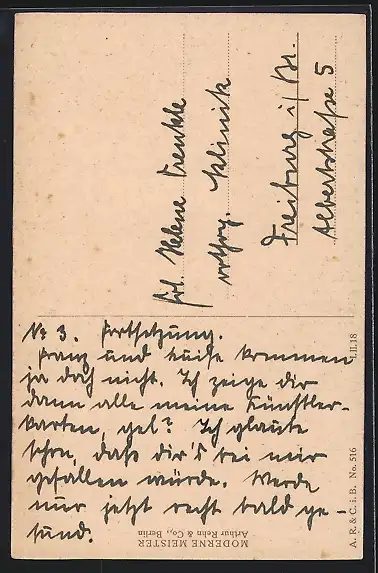 Frl. Helene Trenkle
orthop. Klinik
Freiburg i/Br.
Albertstraße 5
No 3. Fortsetzung.
Franz und Luise kommen
ja doch nicht. Ich zeige dir
dann alle meine Künstler-
karten, gel? Ich glaube
schon, daß dir's bei mir
gefallen würde. Werde
nur jetzt recht bald ge-
sund.
MODERNE MEISTER
Arthur Rehn & Co., Berlin
A. R. & C. i. B. No. 516
1.II.18